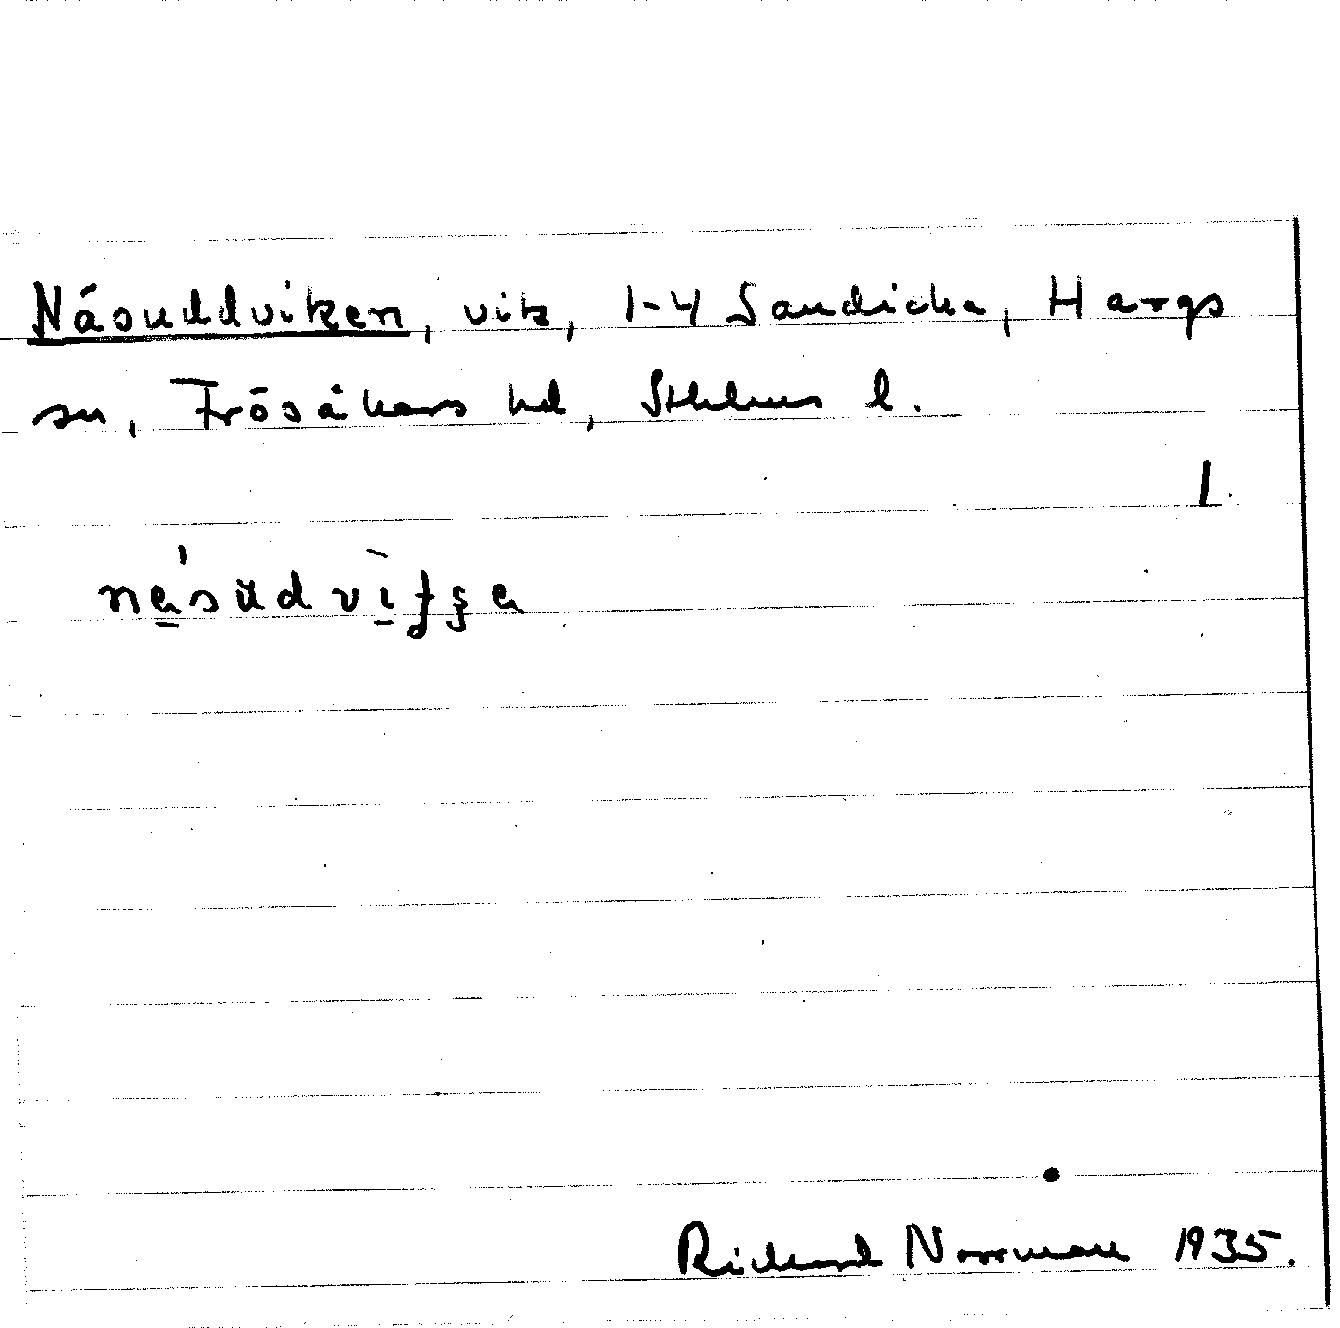 Näsuddviken, vik, 1-4 Sandicka, Hargs
sn, Frösåkers hd, Sthlms l.
1.
Richard Norrman 1935.